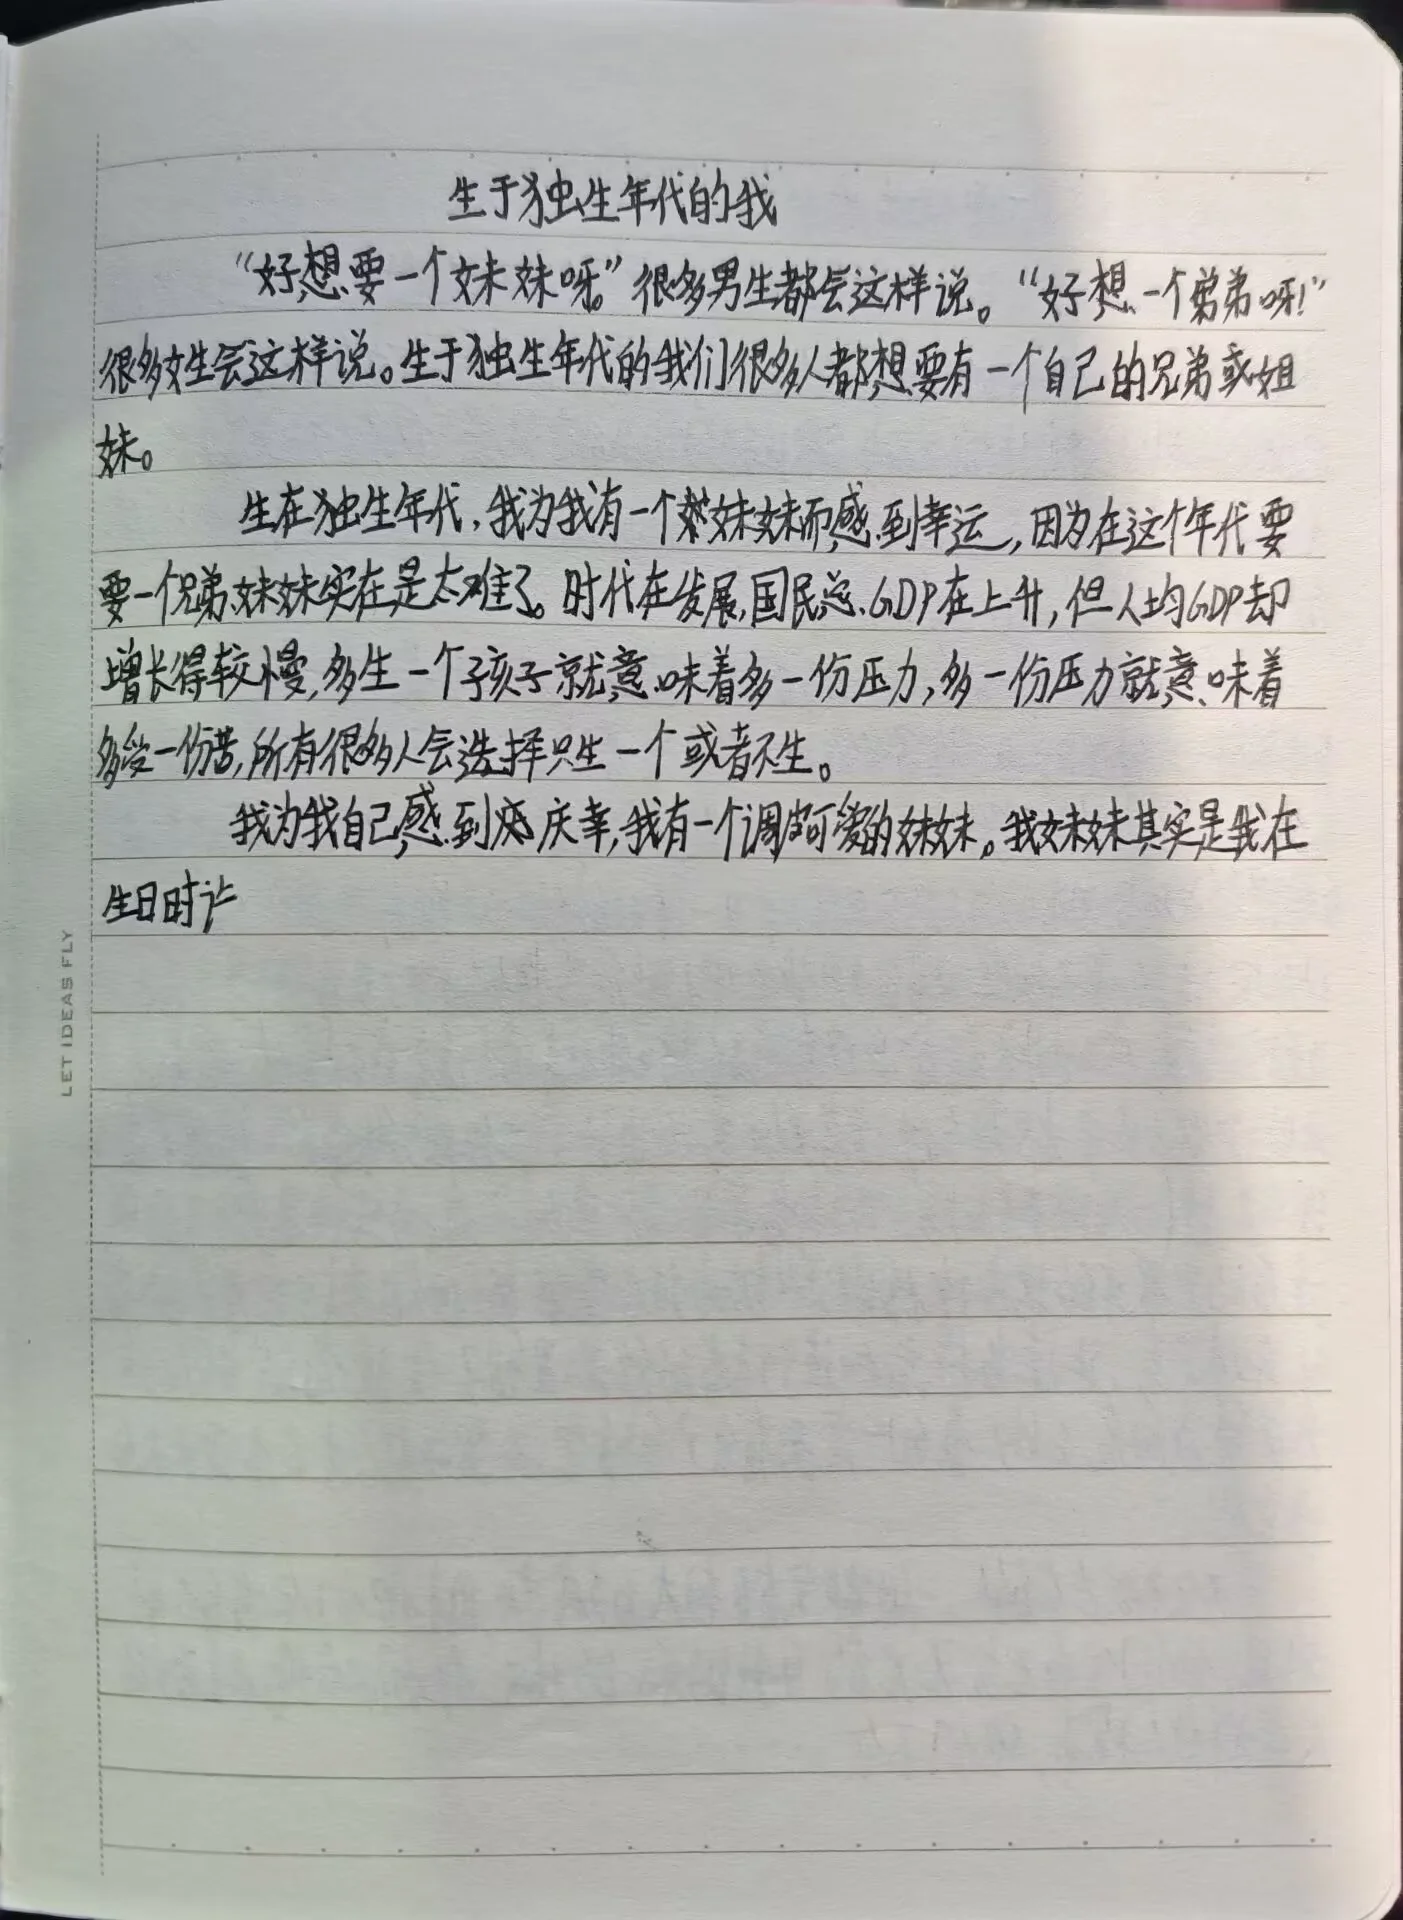 生于独生年代的我
“好想要一个妹妹呀。”很多男生都会这样说。“好想一个弟弟呀!”
很多女生会这样说。生于独生年代的我们很多人都想要有一个自己的兄弟或姐
妹。
生在独生年代,我为我有一个妹妹而感到幸运,因为在这个年代要
要一个兄弟妹妹实在是太难了。时代在发展,国民总GDP在上升,但人均GDP却
增长得较慢,多生一个孩子就意味着多一份压力,多一份压力就意味着
多受一份苦,所有很多人会选择只生一个或者不生。
我为我自己感到庆幸,我有一个调皮可爱的妹妹。我妹妹其实是我在
生日时让
LET IDEAS FLY